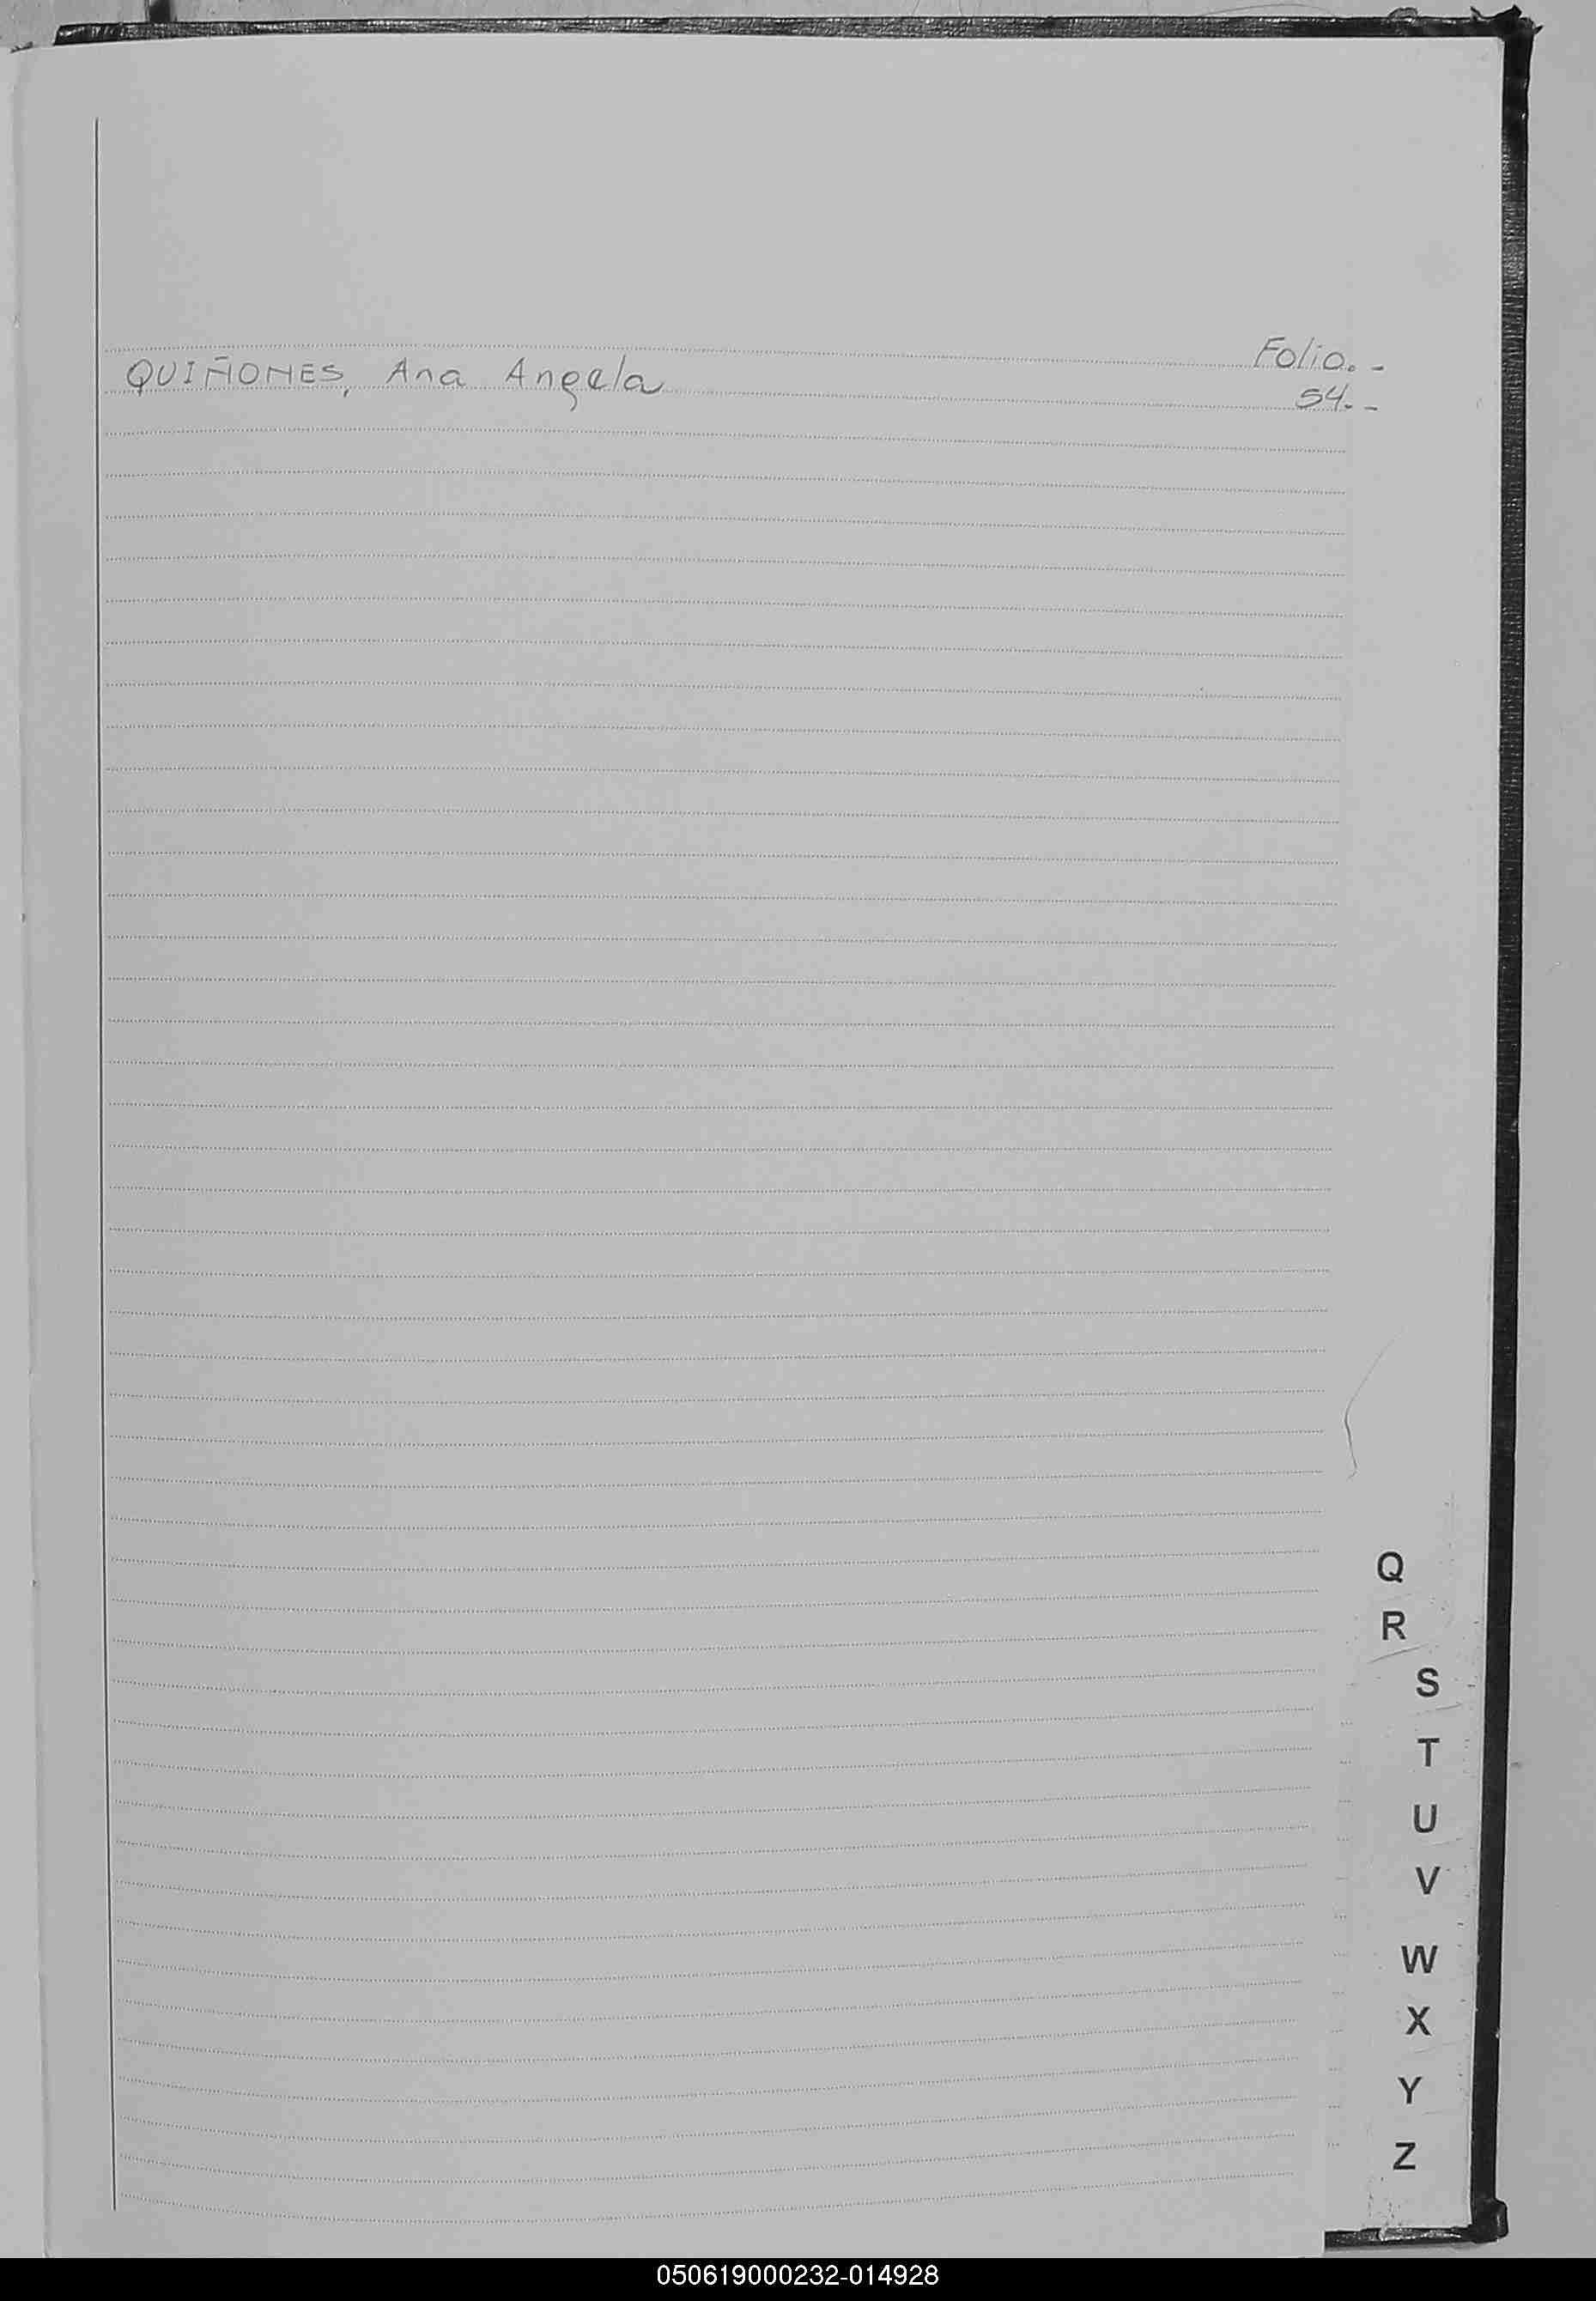 Folio.-
QUIÑONES, Ana Angela 54.-
Q
R
S
T
U
V
W
X
Y
Z
050619000232-014928